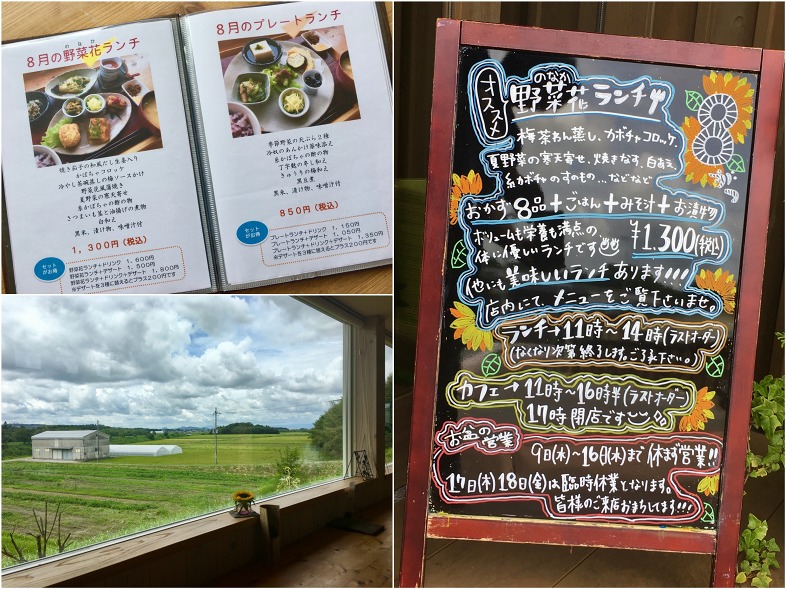 8月の野菜花ランチ
のなか
焼き茄子の和風だし生姜入り
かぼちゃコロッケ
冷やし茶碗蒸しの梅ソースかけ
野菜花風蒲焼き
夏野菜の寒天寄せ
糸かぼちゃの酢の物
さつまいも茎と油揚げの煮物
白和え
黒米、漬け物、味噌汁付
1,300円（税込）
セットがお得
野菜花ランチ+ドリンク 1,600円
野菜花ランチ+デザート 1,500円
野菜花ランチ+ドリンク+デザート 1,800円
※デザートを3種に替えるとプラス200円です
8月のプレートランチ
季節野菜の天ぷら2種
冷奴のあんかけ薬味添え
糸かぼちゃの酢の物
丁字麩の辛し和え
きゅうりの梅和え
黒豆煮
黒米、漬け物、味噌汁付
850円（税込）
セットがお得
プレートランチ+ドリンク 1,150円
プレートランチ+デザート 1,050円
プレートランチ+ドリンク+デザート 1,350円
※デザートを3種に替えるとプラス200円です
オススメ
のなか
野菜花ランチ
梅茶わん蒸し、カボチャコロッケ、
夏野菜の寒天寄せ、焼きなす、白あえ
糸カボチャのすもの…などなど
おかず8品+ごはん+みそ汁+お漬物
ボリュームも栄養も満点の、
体に優しいランチです
¥1.300(税込)
他にも美味しいランチあります!!!
店内にて、メニューをご覧下さいませ。
ランチ→11時〜14時(ラストオーダー)
(なくなり次第終了します。ご了承下さい。)
カフェ→11時〜16時半(ラストオーダー)
17時閉店です
お盆の営業
9日(水)〜16日(水)まで休まず営業!!
17日(木)18日(金)は臨時休業となります。
皆様のご来店お待ちしてます!!!